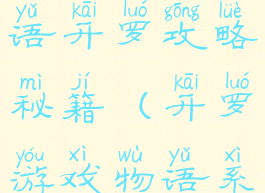 yǔ kāi luó gōng lüè
语开罗攻略
mì jí kāi luó
秘籍(开罗
yóu xì wù yǔ xì
游戏物语系